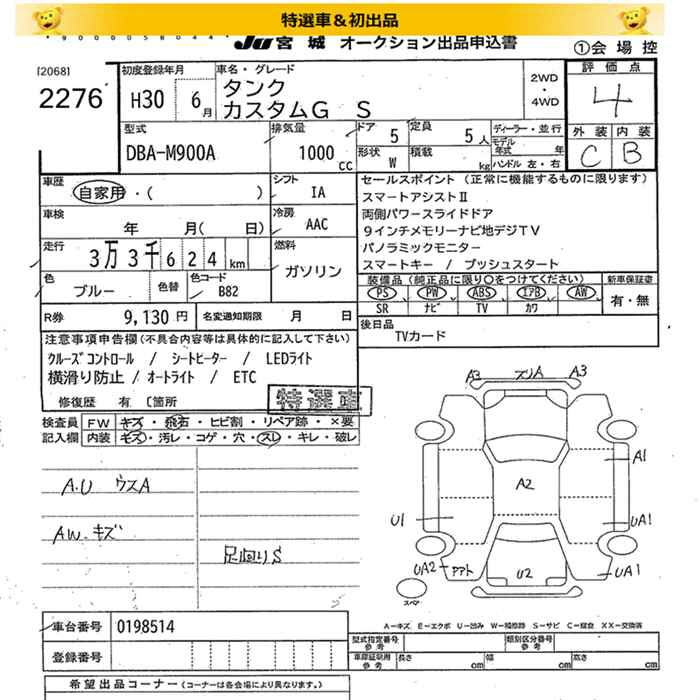 特選車&初出品
Ju 宮城 オークション出品申込書
①会場控
[2068]
2276
初度登録年月
H30 6月
車名・グレード
タンク
カスタムG S
2WD
・
4WD
評価点
4
外装 内装
C B
型式
DBA-M900A
排気量
1000 cc
ドア 5
定員 5人
形状 W
積載 kg
ディーラー・並行
モデル年式 年
ハンドル 左・右
車歴
自家用・( )
シフト
IA
車検
年 月( 日)
冷房
AAC
走行
3万3千624km
燃料
ガソリン
色
ブルー
色替
色コード
B82
R券
9,130円
名変通知期限 月 日
セールスポイント (正常に機能するものに限ります)
スマートアシストⅡ
両側パワースライドドア
9インチメモリーナビ地デジTV
パノラミックモニター
スマートキー / プッシュスタート
装備品 (純正品に限り○をつけてください)
新車保証書
PS PW ABS エアB AW
SR ナビ TV カワ
有・無
後日品
TVカード
注意事項申告欄 (不具合内容等は具体的に記入して下さい)
クルーズコントロール / シートヒーター / LEDライト
横滑り防止 / オートライト / ETC
修復歴 有 C箇所
特選車
検査員
記入欄
FW キズ・飛石・ヒビ割・リペア跡・×要
内装 キズ・汚レ・コゲ・穴・スレ・キレ・破レ
A.U ウスA
AW.キズ
足廻りS
A3 スリA A3
A1
A2
U1
UA1
UA2 アアト
U2
UA1
スペア
A―キズ E―エクボ U―凹み W―補修跡 S―サビ C―腐食 XX―交換済
車台番号 0198514
登録番号
型式指定番号
参考
類別区分番号
参考
車庫証明用
参考
長さ cm 幅 cm 高さ cm
希望出品コーナー (コーナーは各会場により異なります。)